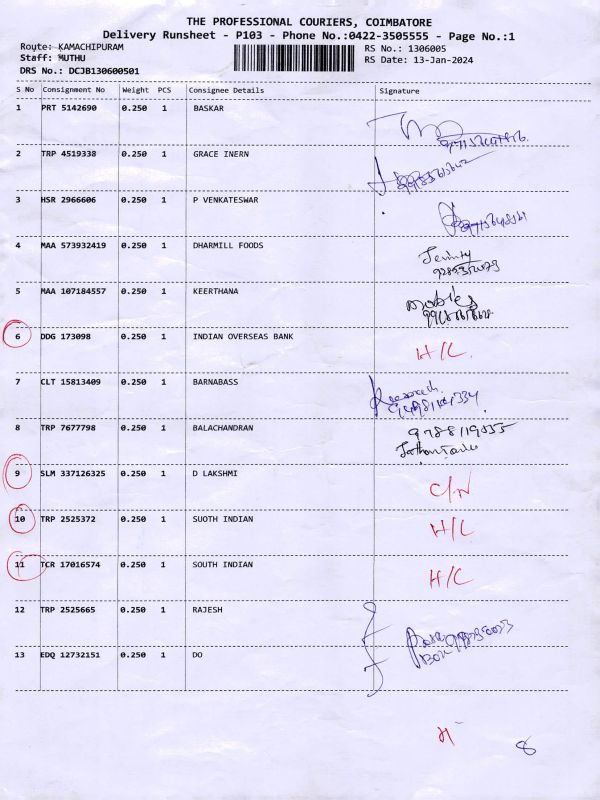 THE PROFESSIONAL COURIERS, COIMBATORE
Delivery Runsheet - P103 - Phone No.:0422-3505555 - Page No.:1
Route: KAMACHIPURAM RS No.: 1306005
Staff: MUTHU RS Date: 13-Jan-2024
DRS No.: DCJB130600501
S No Consignment No Weight PCS Consignee Details Signature
1 PRT 5142690 0.250 1 BASKAR
2 TRP 4519338 0.250 1 GRACE INERN
3 HSR 2966606 0.250 1 P VENKATESWAR
4 MAA 573932419 0.250 1 DHARMILL FOODS
5 MAA 107184557 0.250 1 KEERTHANA
6 DDG 173098 0.250 1 INDIAN OVERSEAS BANK H/C
7 CLT 15813409 0.250 1 BARNABASS
8 TRP 7677798 0.250 1 BALACHANDRAN
9 SLM 337126325 0.250 1 D LAKSHMI C/N
10 TRP 2525372 0.250 1 SUOTH INDIAN H/C
11 TCR 17016574 0.250 1 SOUTH INDIAN H/C
12 TRP 2525665 0.250 1 RAJESH
13 EDQ 12732151 0.250 1 DO
8